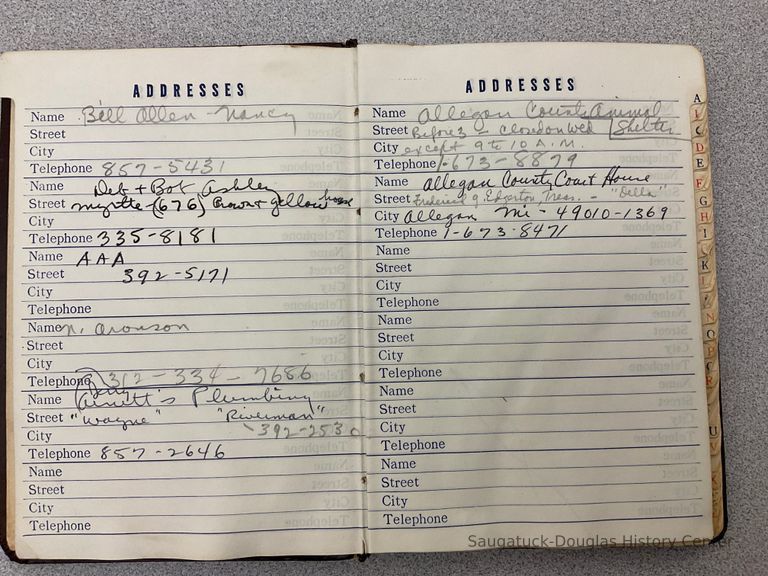 ADDRESSES
Name Bill Allen - Nancy
Street
City
Telephone 857-5431
Name Deb + Bob Ashley
Street Myrtle - (676) Brown + yellow house
City
Telephone 335-8181
Name AAA
Street 392-5171
City
Telephone
Name N. Aronson
Street
City
Telephone 312-334-7686
Name Arnett's Plumbing
Street "Wayne" "Riverman"
City 392-253
Telephone 857-2646
Name
Street
City
Telephone
ADDRESSES
Name Allegan County Animal
Street Before 3 - closed on Wed Shelter
City except 9 to 10 A.M.
Telephone 1-673-8879
Name Allegan County Court House
Street Frederick J. Edgerton, Treas. - "Della"
City Allegan Mi - 49010-1369
Telephone 1-673-8471
Name
Street
City
Telephone
Name
Street
City
Telephone
Name
Street
City
Telephone
Name
Street
City
Telephone
A
D
E
F
G
H
I
K
L
N
O
P
R
U
Saugatuck-Douglas History Center